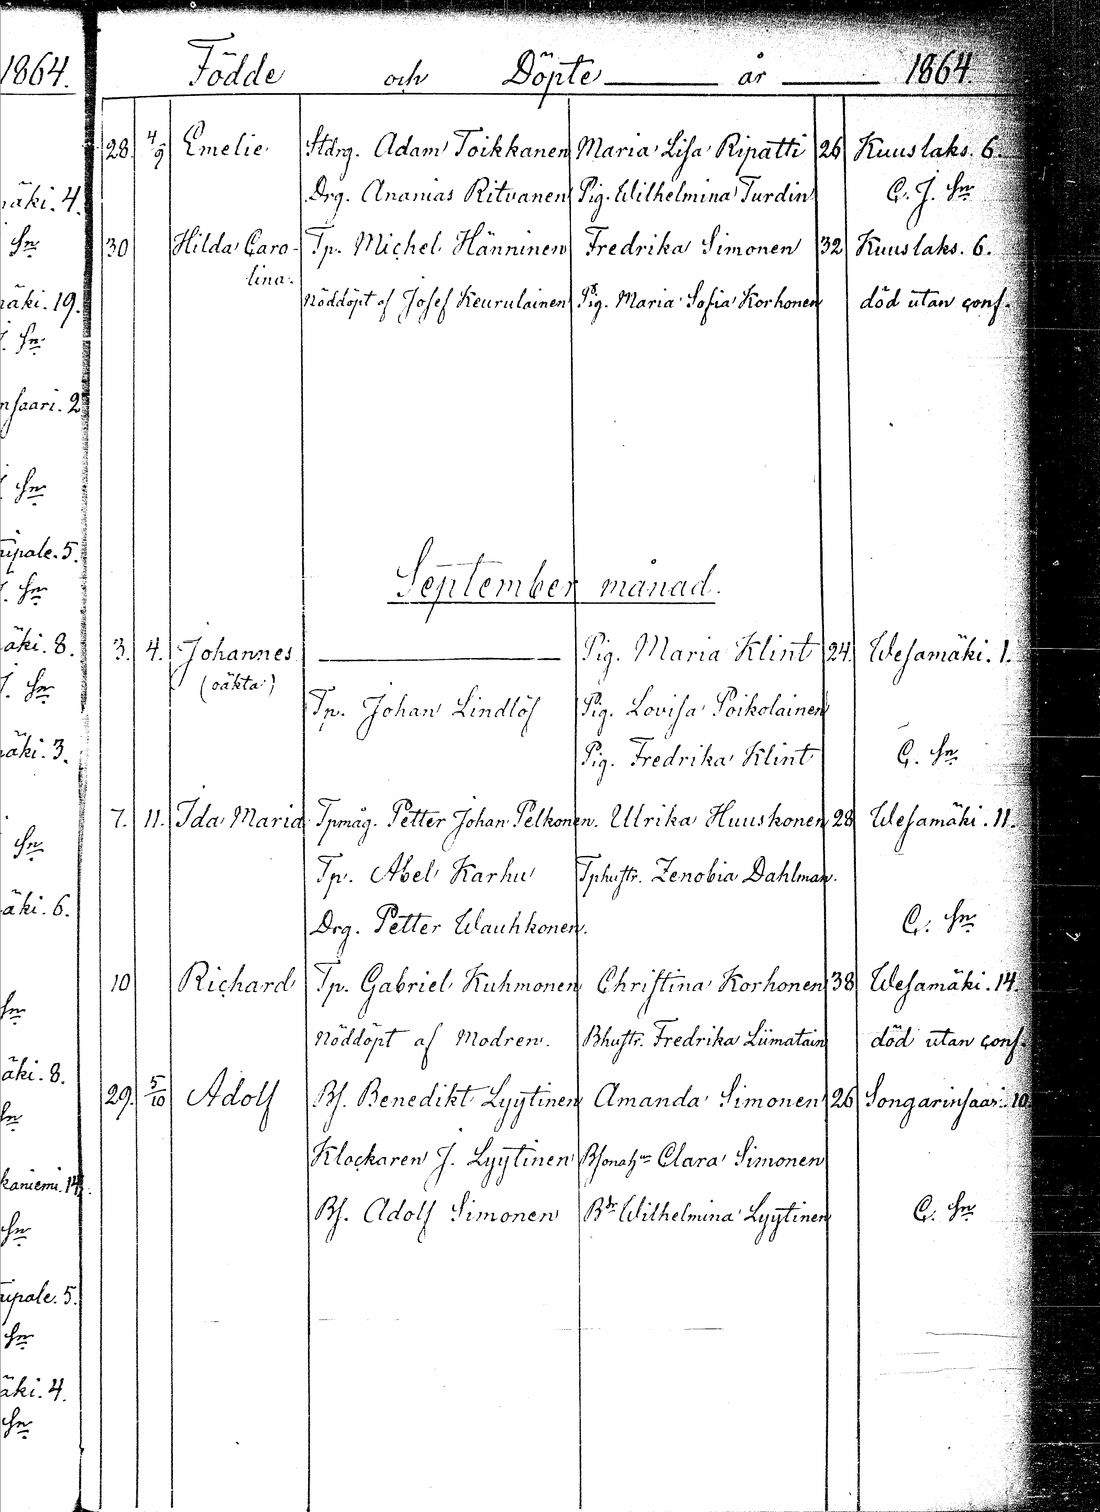 1864.
Födde och Döpte år 1864
äki. 4.
Sn
äki. 19.
J. Sn
nsaari. 2
J. Sn
ripale. 5.
J. Sn
äki. 8.
J. Sn
äki. 3.
Sn
äki. 6.
Sn
äki. 8.
Sn
kaniemi. 14.
Sn
ripale. 5.
Sn
äki. 4.
Sn
28. 4/9 Emelie Stdrg. Adam Toikkanen Maria Lisa Ripatti 26 Kuuslaks. 6.
Drg. Ananias Ritvanen Pig. Wilhelmina Turdin C. J. Sn
30 Hilda Caro- Tp. Michel Hänninen Fredrika Simonen 32 Kuuslaks. 6.
lina. nöddöpt af Josef Keurulainen Pig. Maria Sofia Korhonen död utan conf.
September månad.
3. 4. Johannes Pig. Maria Klint 24. Wesamäki. 1.
(oäkta)
Tp. Johan Lindlöf Pig. Lovisa Poikolainen
Pig. Fredrika Klint C. Sn
7. 11. Ida Maria Tpmåg. Petter Johan Pelkonen. Ulrika Huuskonen 28 Wesamäki. 11.
Tp. Abel Karhu Tphustr. Zenobia Dahlman.
Drg. Petter Wauhkonen. C. Sn
10 Richard Tp. Gabriel Kuhmonen Christina Korhonen 38 Wesamäki. 14
nöddöpt af Modren. Bhustr. Fredrika Liimatain död utan conf.
29. 5/10 Adolf Bf. Benedikt Lyytinen Amanda Simonen 26 Songarinsaari. 10
Klockaren J. Lyytinen Clara Simonen
Bf. Adolf Simonen Bdr Wilhelmina Lyytinen C. Sn